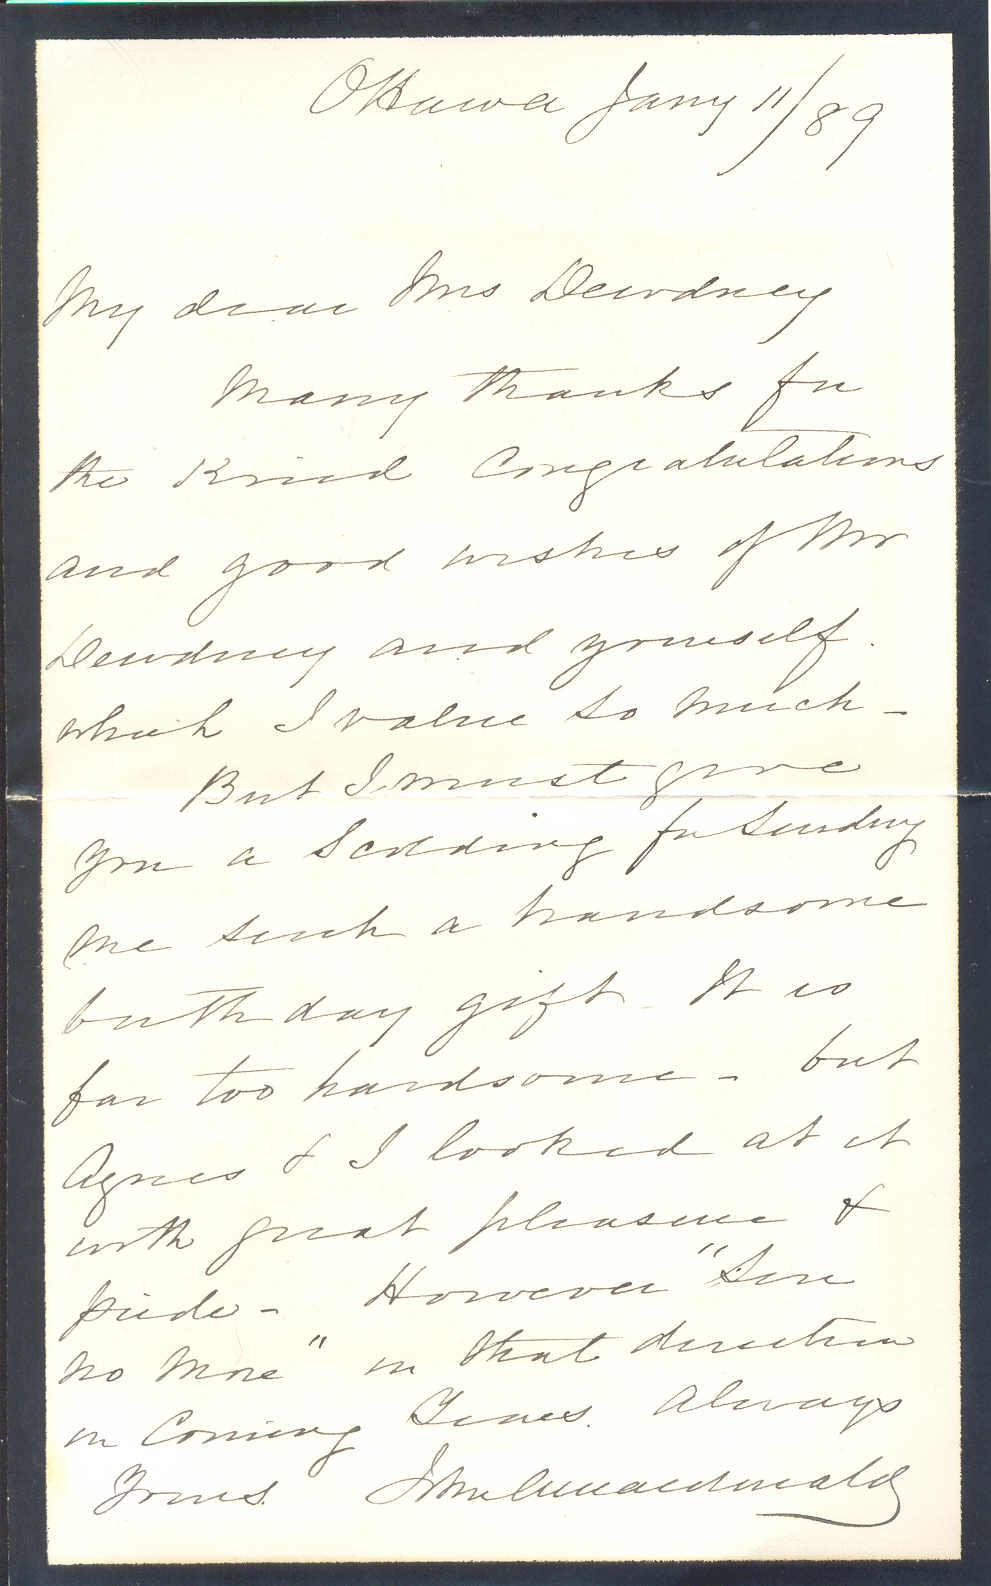 Ottawa Jany 11/89
My dear Mrs Dewdney
Many thanks for
the Kind Congratulations
and good wishes of Mr
Dewdney and yourself.
which I value so much -
But I must give
you a Scolding for Sending
me such a handsome
birthday gift - It is
far too handsome - but
Agnes & I looked at it
with great pleasure &
pride - However "Sin
no more" in that direction
in Coming Years. Always
Yours. John A Macdonald